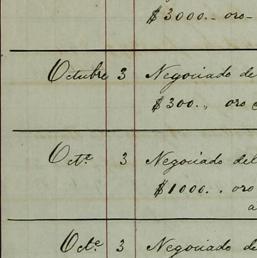 $3000.- oro-
Octubre 3 Negociado de
$300.,, oro
Oct.e 3 Negociado del
$1000.. oro
a
Oct.e 3 Negociado de